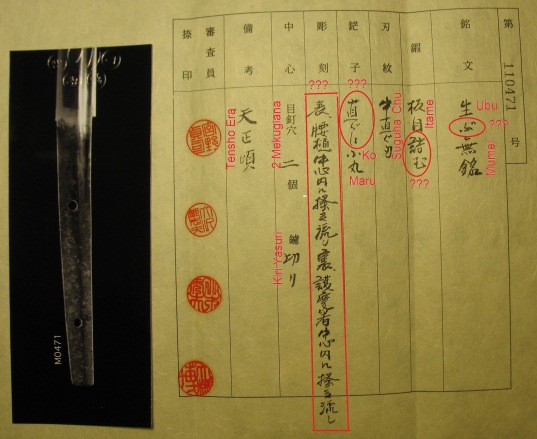 第 110471 号
銘文 生ぶ無銘
Ubu
???
Mume
鍛 板目詰む
Itame
???
刃紋 中直ぐ刃
Suguha Chu
鋩子 直ぐに小丸
???
Ko
Maru
彫刻 表、腰樋中心内に掻き流し裏、護摩箸中心内に掻き流し
???
中心 目釘穴 二 個 鑢 切り
2 Mekugiana
Kiri Yasuri
備考 天正頃
Tensho Era
審査員
捺印
M0471